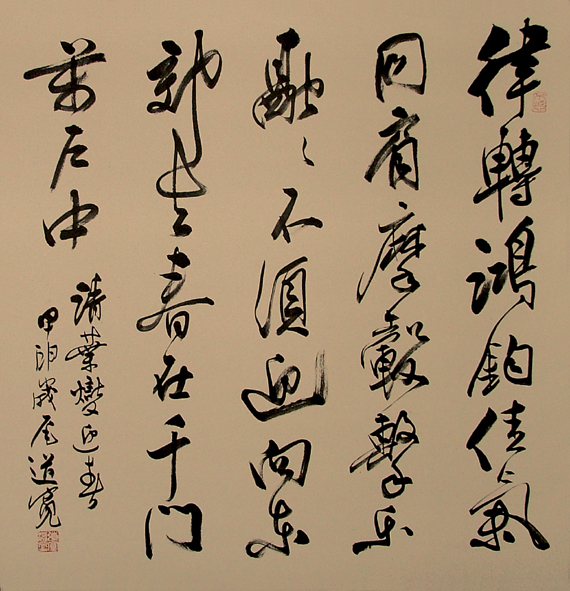 律轉鴻鈞佳氣
同肩摩轂擊樂
融〻不須迎向東
郊去春在千門
萬戶中
清葉燮迎春
甲申歲尾道寬